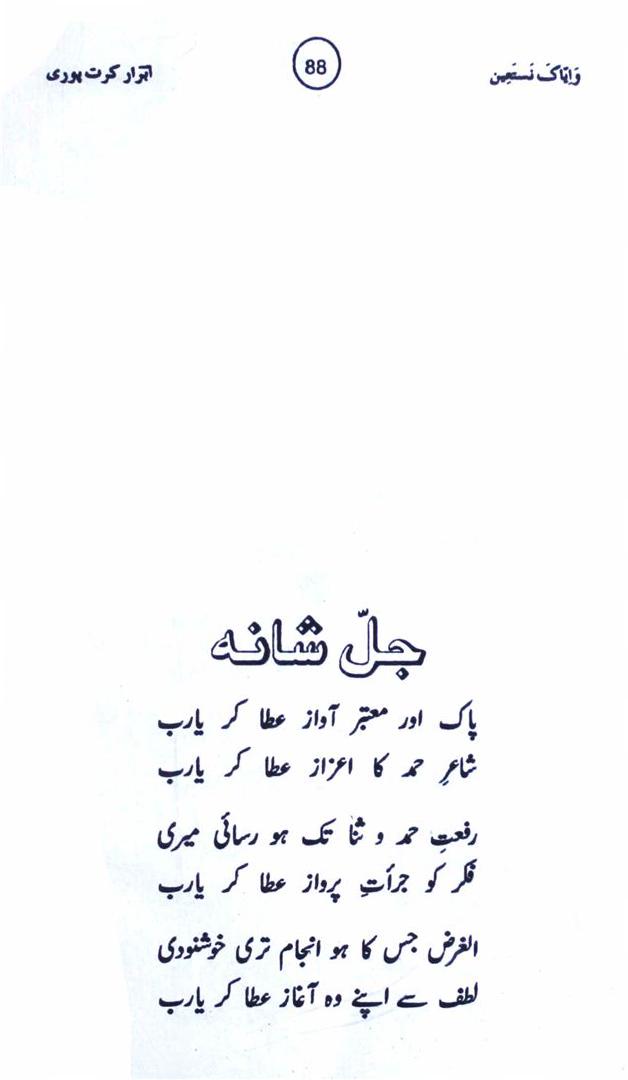 وَاِیّاکَ نَستَعِین
88
ابرار کرت پوری
جلّ شانہ
پاک اور معتبر آواز عطا کر یارب
شاعرِ حمد کا اعزاز عطا کر یارب
رفعتِ حمد و ثنا تک ہو رسائی میری
فکر کو جرأتِ پرواز عطا کر یارب
الغرض جس کا ہو انجام تری خوشنودی
لطف سے اپنے وہ آغاز عطا کر یارب